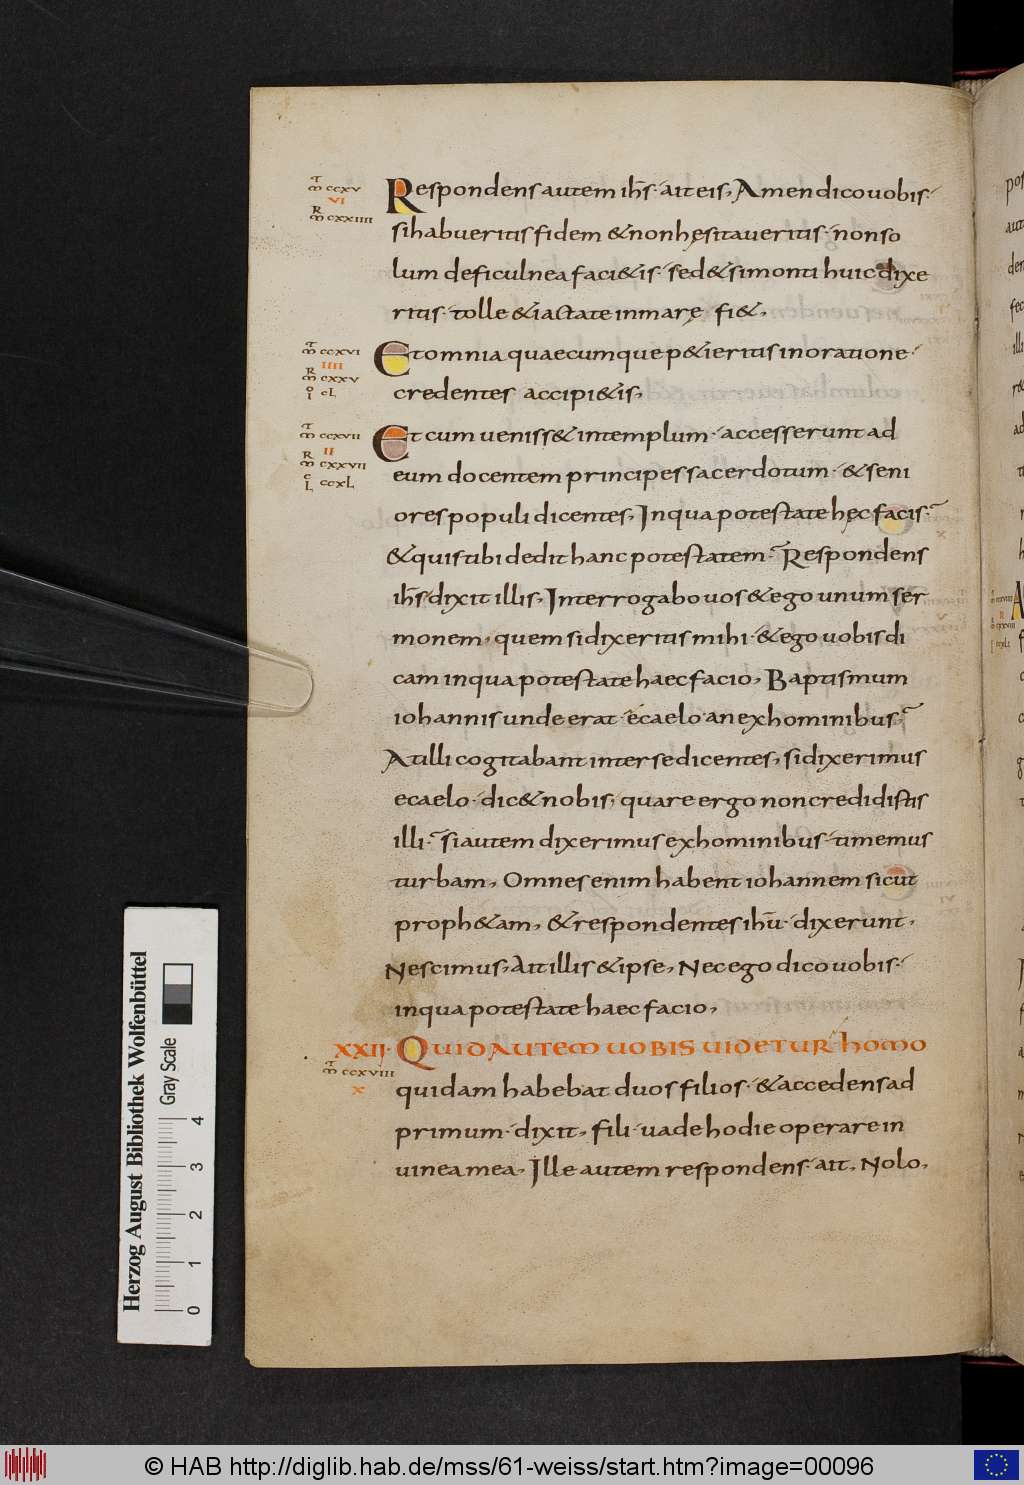 Respondens autem ihs· ait eis, Amen dico uobis·
si habueritis fidem & non hęsitaueritis· non so
lum de ficulnea faci&is· sed & si monti huic dixe
ritis· tolle & iactate in marę fi&,
Et omnia quaecumque p&ieritis in oratione·
credentes accipi&is,
Et cum ueniss& in templum· accesserunt ad
eum docentem principes sacerdotum· & seni
ores populi dicentes, In qua potestate hęc facis·
& quis tibi dedit hanc potestatem· Respondens
ihs· dixit illis, Interrogabo uos & ego unum ser
monem, quem si dixeritis mihi· & ego uobis di
cam in qua potestate haec facio, Baptismum
iohannis unde erat· e caelo· an ex hominibus,
At illi cogitabant inter se dicentes, si dixerimus
e caelo· dic& nobis, quare ergo non credidistis
illi· si autem dixerimus ex hominibus· timemus
turbam, Omnes enim habent iohannem sicut
proph&am, & respondentes ihū· dixerunt,
Nescimus, Ait illis & ipse, Nec ego dico uobis·
in qua potestate haec facio,
XXII· QUID AUTEM UOBIS UIDETUR homo
quidam habebat duos filios· & accedens ad
primum· dixit, fili· uade hodie operare in
uinea mea, Ille autem respondens· ait, Nolo,
T
M CCXV
VI
R
M CXXIIII
T
M CCXVI
IIII
R
M CXXV
O
I CL
T
M CCXVII
II
R
M CXXVII
C
L CCXL
T
M CCXVIII
X
Herzog August Bibliothek Wolfenbüttel
Gray Scale
0 1 2 3 4
© HAB http://diglib.hab.de/mss/61-weiss/start.htm?image=00096